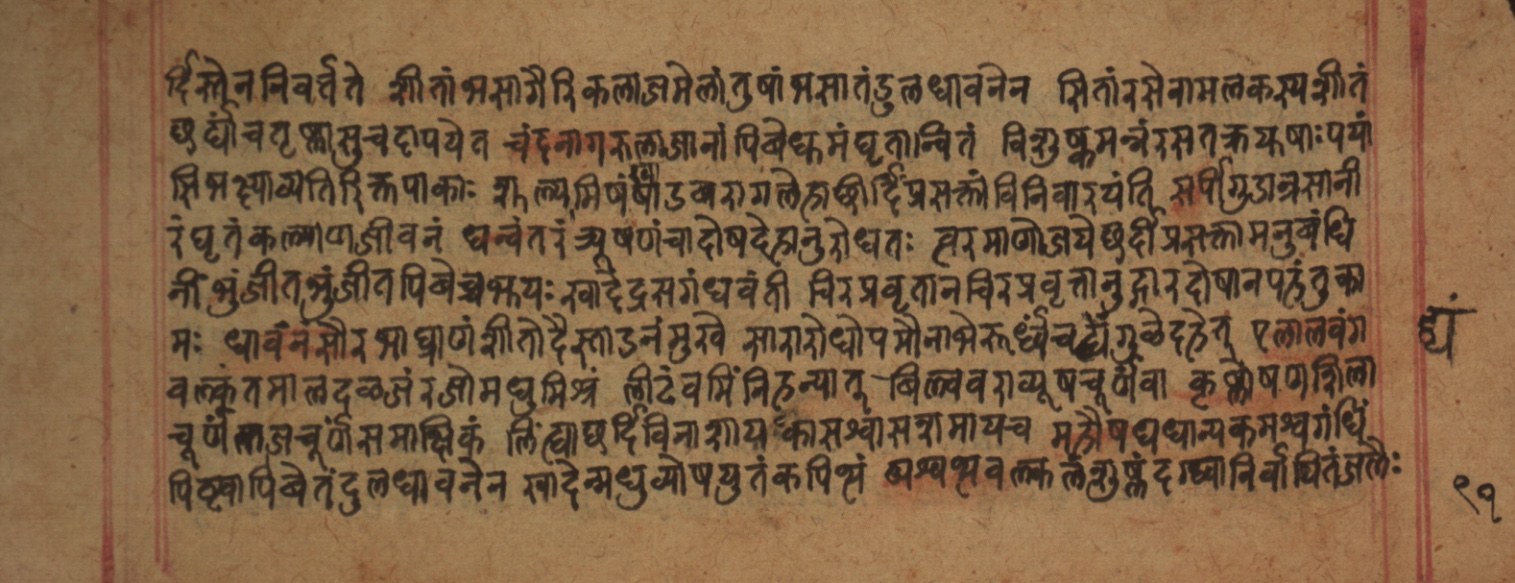 र्दिस्तेन निवर्तते शीतांभसागैरिकलाजमेलां तुषांभसा तंडुलधावनेन सितां रसेनामलकस्य शीतं
छर्द्यां च तृष्णासु च दापयेत चंदनागरुलाजानां पिबेद्धमं घृतान्वितं विशुष्कमन्नं रसतक्रयूषाः पयां
सि भक्ष्याव्यतिरिक्तपाकाः शूल्यमिषं षाडवरागलेहाछर्दिं प्रसक्तां विनिवारयंति सर्पीगुडान्नसानी
रं घृतं कल्याणजीवनं धन्वंतरं त्र्यूषणं चा दोषदेहानुरोधतः त्वरमाणोजयेछर्दी प्रसक्तामनुबंधि
नीं भुंजीत भुंजीत पिबेच्च भूयः खादेद्रसगंधवंती चिरप्रवृतानचिरप्रवृत्तानुद्गारदोषानपहंतुका
मः धावनं सौरभाघ्राणं शीतोदैस्ताडनं मुखे सारारोधोपमौनाभेरूर्ध्वं च द्व्यंगुळेदहेत् एलालवंग
वल्कं तमालदळजं रजो मधुमिश्रं लीढं वमिं निहन्यात् बिल्ववराव्यूषचूर्णं वा कृष्णोषणशिला
चूर्णं लाजचूर्णं समाक्षिकं लिंह्याछर्दिविनाशाय कासश्वासशमाय च महौषधधान्यकमश्वगंधिं
पिष्ट्वा पिबेतंदुलधावनेन खादेन्मधुव्योषयुतं कपित्थं अश्वत्थवल्कलं शुष्कं दग्ध्वा निर्वापितं जलैः
द्व्यं
९१